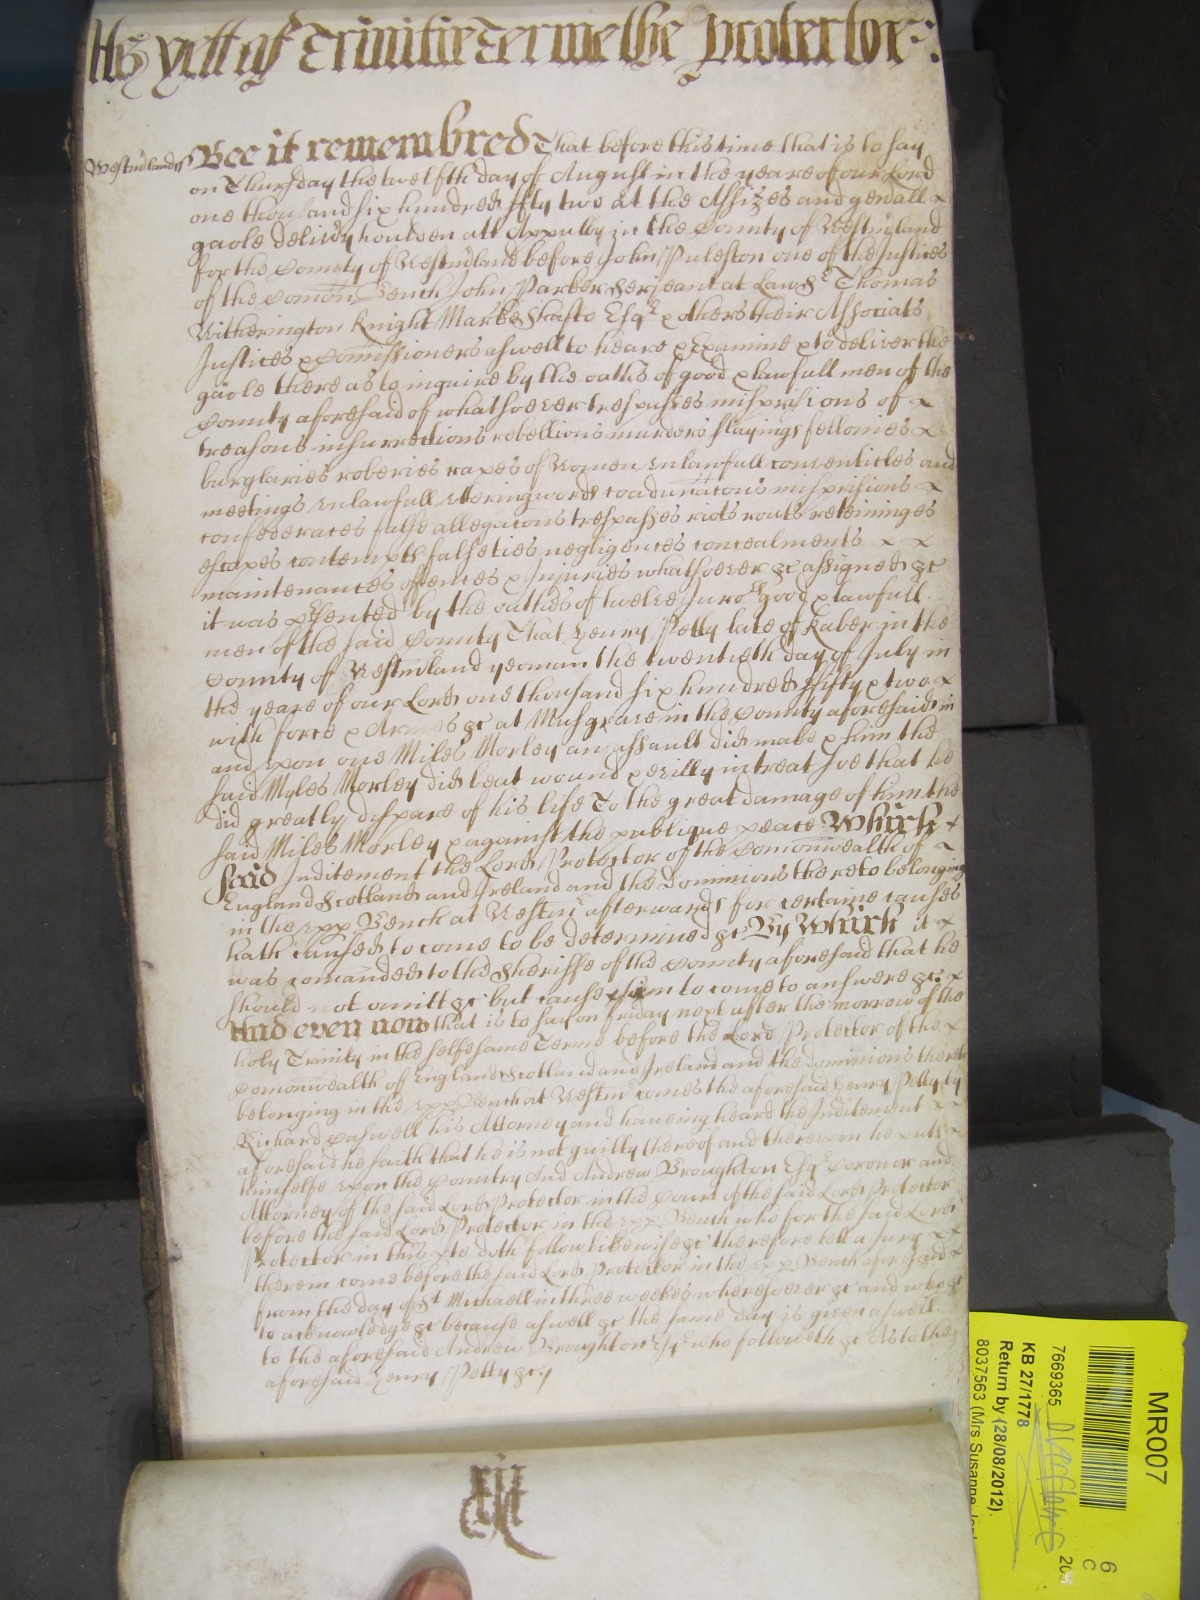 As yett of Trinitie Terme the Protector:
Westmrland ss Bee it remembred That before this time that is to say
on Thursday the twelfth day of August in the yeare of our Lord
one thousand six hundred fifty two at the Assizes and genall
gaole delivy houlden att Appulby in the County of Westmrland
for the County of Westmrland before John Puleston one of the Justices
of the Comon Bench John Parker Serjeant at Law & Thomas
Witherington Knight Marke Shafto Esqr & others their Associats
Justices & Comissioners aswell to heare & Examine & to deliver the
gaole there as to inquire by the oaths of good & lawfull men of the
County aforesaid of whatsoever trespasses misprisions of
treasons insurrections rebellions murders slayings fellonies
burglaries roberies rapes of Women unlawfull conventicles and
meetings unlawfull uttering words coadunacons misprisions
confederacies false allegacons trespasses riots routs reteininges
escapes contempts falseties negligences concealments
maintenances offences & Injuries whatsoever &c assigned &c
it was psented by the oathes of twelve Juros good & lawfull
men of the said County That Henry Petty late of Kaber in the
County of Westmrland yeoman the twentieth day of July in
the yeare of our Lord one thousand six hundred fifty & two
with force & Armes &c at Musgrave in the County aforesaid in
and upon one Miles Morley an assault did make & him the
said Myles Morley did beat wound & evilly intreat soe that he
did greatly dispare of his life To the great damage of him the
said Miles Morley & against the publique peace Which
said Inditement the Lord Protector of the Comonwealth of
England Scotland and Ireland and the Dominions thereto belonging
in the upp Bench at Westmr afterwards for certaine causes
hath caused to come to be determined &c By Which it
was comanded to the Sheriffe of the County aforesaid that he
should not omitt &c but cause him to come to answere &c:
And even now that is to say on friday next after the morrow of the
holy Trinity in the selfe same Terme before the Lord Protector of the
Comonwealth of England Scotland and Ireland and the dominions thereto
belonging in the upp Bench at Westmr comes the aforesaid Henry Petty by
Richard Caswell his Attorney and haveing heard the Inditement
aforesaid he saith that he is not guilty thereof and thereupon he puts
himselfe upon the Country And Andrew Broughton Esqr Coronor and
Attorney of the said Lord Protector in the Court of the said Lord Protector
before the said Lord Protector in the upp Bench who for the said Lord
Protector in this pte doth follow likewise &c therefore lett a Jury
therein come before the said Lord Protector in the upp Bench aforesaid
from the day of St Michaell in three weekes wheresoever &c and who &c
to acknowledge &c because aswell &c the same day is given aswell
to the aforesaid Andrew Broughton Esqr who followeth &c As to the
aforesaid Henry Petty &c:
MR007
7669365
KB 27/1778
Return by (28/08/2012)
8037563 (Mrs Susanne
6
C